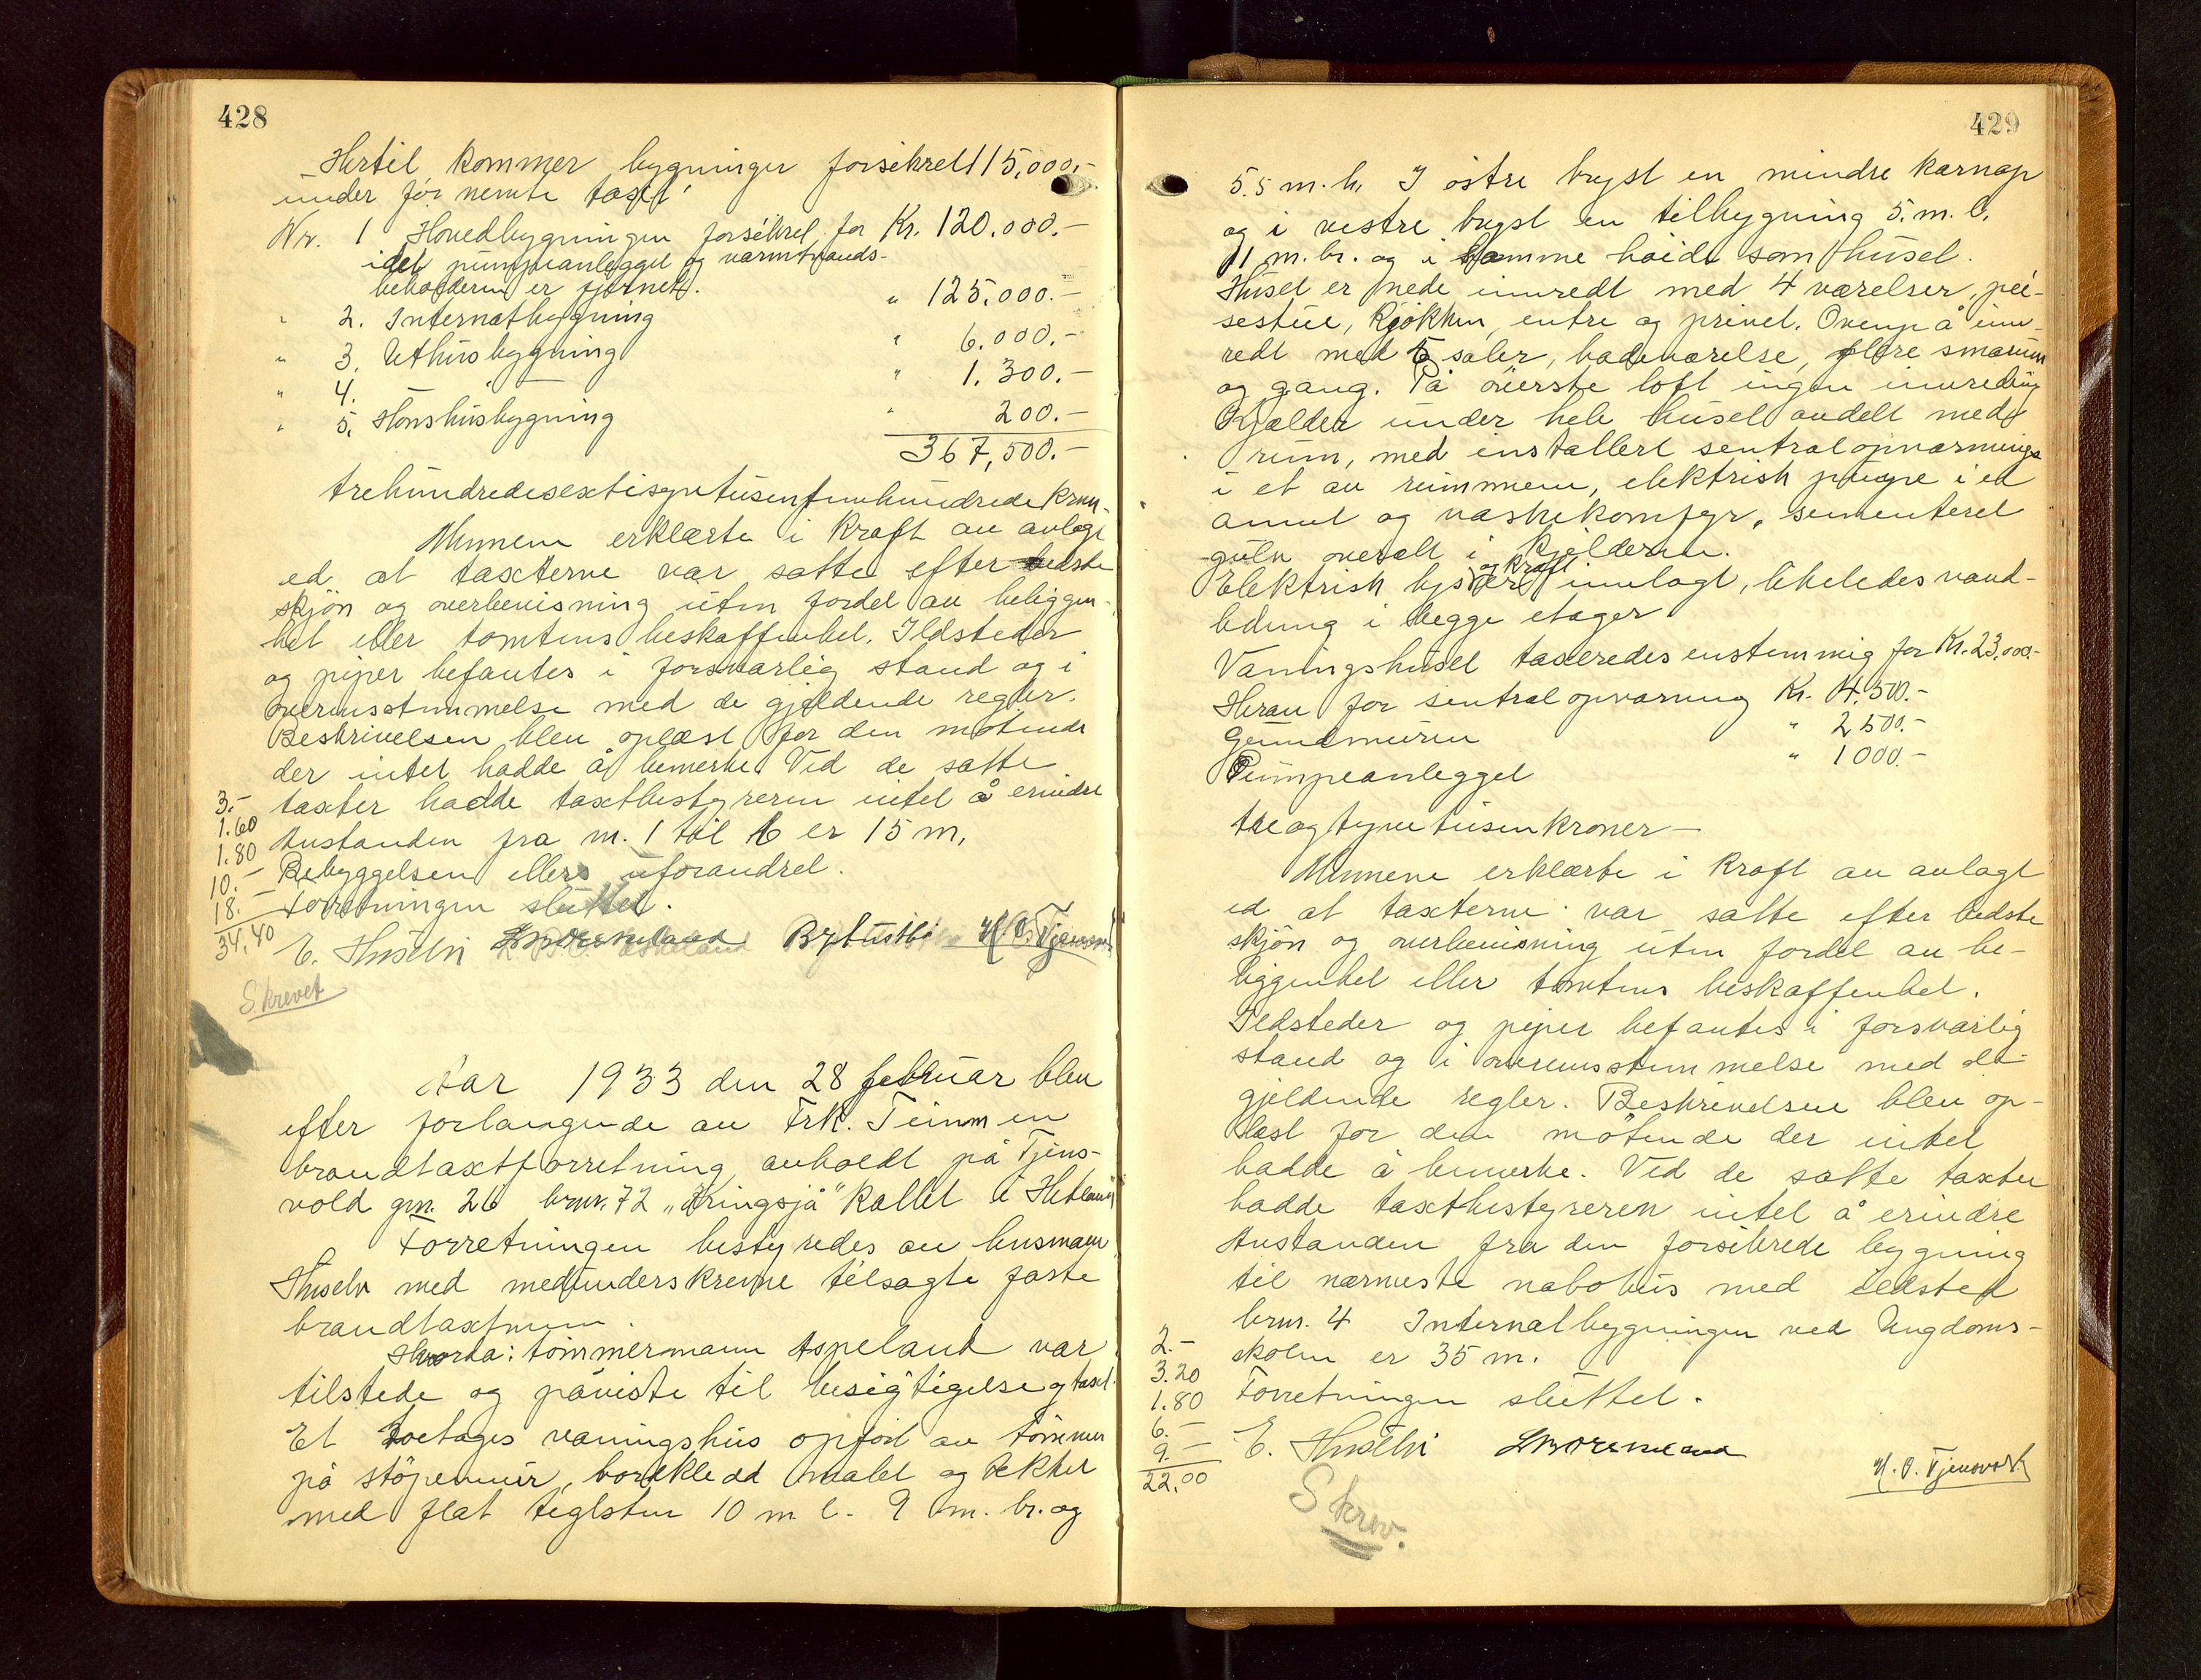 428
Hertil kommer bygninger forsikret 115,000.-
under før nemte taxt
Nr. 1 Hovedbygningen forsikret for Kr. 120.000.-
idet pumpeanlegget og varmtvands-
beholderen er fjernet.
" 2. Internatbygning " 125.000.-
" 3. Uthusbygning " 6.000.-
" 4. " " 1.300.-
" 5. Hønshusbygning " 200.-
367,500.-
trehundredesextisyvtusenfemhundrede kron.
Mennene erklærte i kraft av avlagt
ed at taxterne var satte efter bedste
skjøn og overbevisning uten fordel av beliggen-
het eller tomtens beskaffenhet. Ildsteder
og piper befantes i forsvarlig stand og i
overensstemmelse med de gjeldende regler.
Beskrivelsen blev oplæst for den møtende
der intet hadde å bemerke. Ved de satte
3.- taxter hadde taxtbestyreren intet å erindre
1.60 Avstanden fra nr. 1 til 6 er 15 m.
1.80 Bebyggelsen ellers uforandret.
10.-
18.- Forretningen sluttet.
34,40 E. Husebø Aspeland H. O. Tjensvold
Skrevet
Aar 1933 den 28 februar blev
efter forlangende av Frk. Teinum en
brandtaxtforretning avholdt på Tjens-
vold gnr. 26 brnr. 72 „Kringsjå" kallet i Hetland
Forretningen bestyredes av lensmann
Husebø med medunderskrevne tilsagte faste
brandtaxtmenn.
Hvorda: tømmermann Aspeland var
tilstede og påviste til besigtigelse og taxt.
Et toetages våningshus opført av tømmer
på støpemur, bordkledd malet og tekket
med flat teglsten 10 m l. 9 m. br. og
429
5.5 m. h. I østre bryst en mindre karnap
og i vestre bryst en tilbygning 5. m. l.
11 m. br. og i samme høide som huset.
Huset er nede innredt med 4 værelser, pei-
sestue, kjøkken, entre og privet. Ovenpå inn-
redt med 5 saler, badeværelse, flere smårum
og gang. På øverste loft ingen innreding
Kjælder under hele huset avdelt med
rum, med installert sentralopvarmings
i et av rummene, elektrisk pumpe i et
annet og vaskekomfyr, sementeret
gulv overalt i kjelderen.
Elektrisk lys og kraft er innlagt, likeledes vand-
ledning i begge etager
Våningshuset taxeredes enstemmig for Kr. 23.000.-
Herav for sentralopvarming Kr. 4.500.-
Grundmuren " 2500.-
Pumpeanlegget " 1000.-
treogtyvetusenkroner—
Mennene erklærte i kraft av avlagt
ed at taxterne var satte efter bedste
skjøn og overbevisning uten fordel av be-
liggenhet eller tomtens beskaffenhet.
Ildsteder og piper befantes i forsvarlig
stand og i overensstemmelse med de
gjeldende regler. Beskrivelsen blev op-
læst for den møtende der intet
hadde å bemerke. Ved de satte taxter
hadde taxtbestyreren intet å erindre
Avstanden fra den forsikrede bygning
til nærmeste nabohus med ildsted
brnr. 4 Internatbygningen ved Ungdoms-
2.- skolen er 35 m.
3.20
1.80 Forretningen sluttet.
6.-
9.- E. Husebø H. O. Tjensvold
22,00
Skrev.